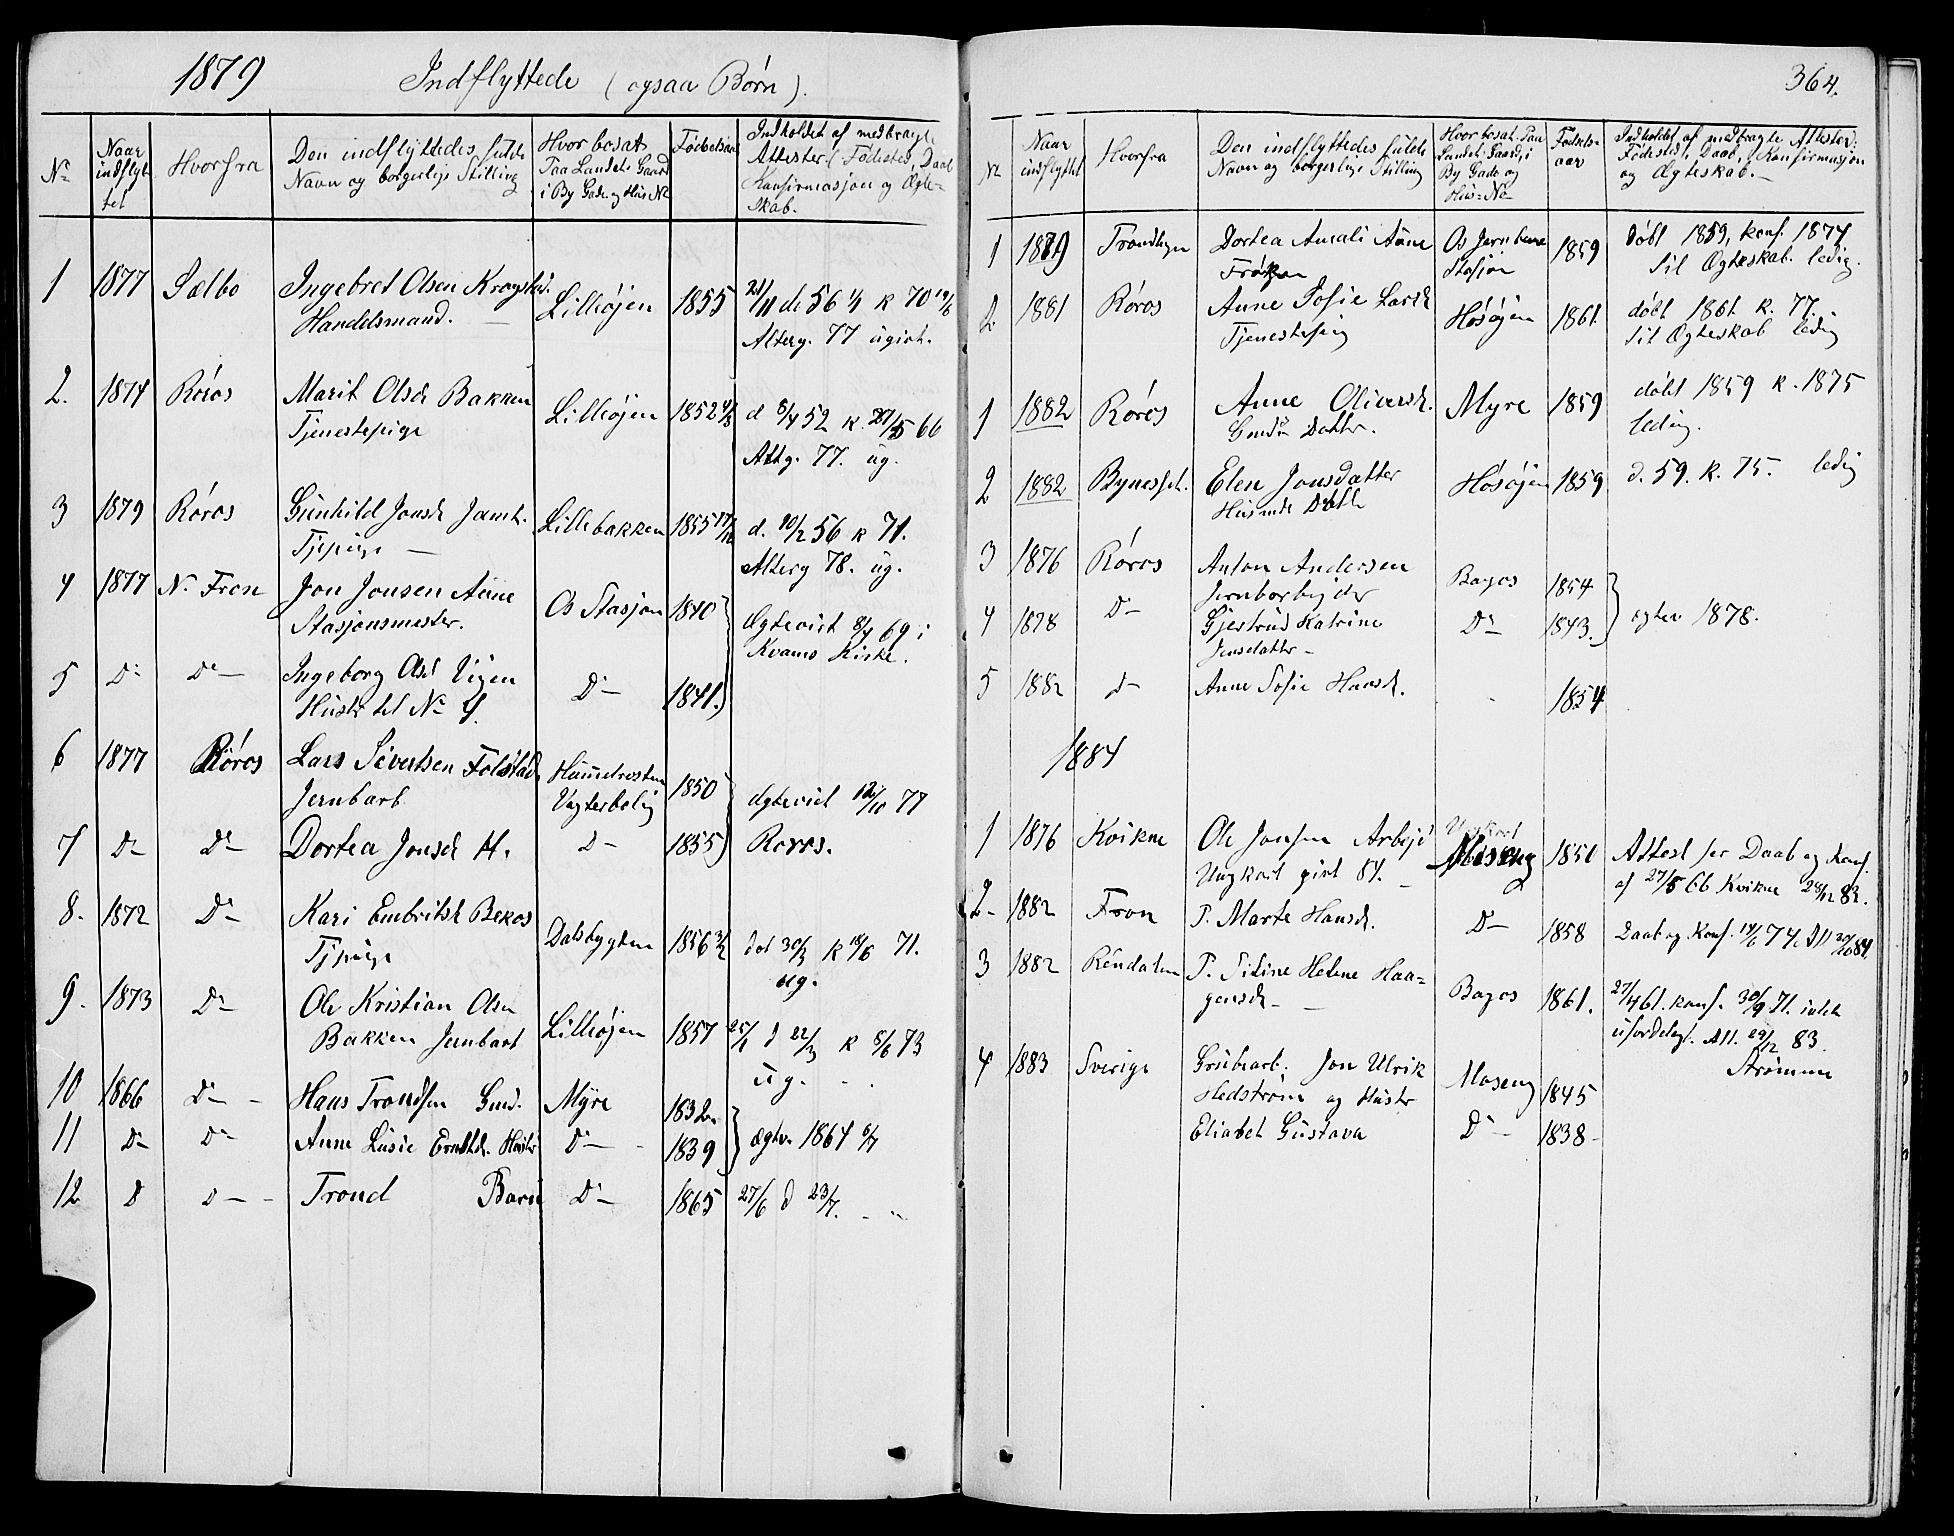 1879 Indflyttede (ogsaa Børn).
No
Naar indflyttet
Hvorfra
Den indflyttedes fulde Navn og borgerlige Stilling
Hvor bosat Paa Landet: Gaard i By Gade og Hus No
Fødselsaar
Indholdet af medbragte Attester: Fødested, Daab Konfirmasjon og Ægteskab.
1 1877 Sælbo Ingebret Olsen Lilleøjen 1855 21/11 d. 56 k 70 19/6
Handelsmand. Alterg. 77 ugivt.
2. 1874 Røros Marit Olsd. Bakken Lilleøjen 1852 4/3 d 8/4 52 k. 66
Tjenestepige Altg. 77. ug.
3 1879 Røros Gunhild Jonsd. Lillebakken 1855 17/12 d. 10/2 56 k 71.
Tjpige — Alterg 78. ug.
4 1877 N. Fron Jon Jonsen Aüne Os Stasjon 1840 Ægteviet 8/4 69 i
Stasjonsmester. Kvams Kirke.
5 Do Do — Ingeborg Olsd Vigen Do — 1841.
Hustr til No 4.
6 1877 Røros Lars Sivertsen Folstad Vogterbolig 1850 Ægteviet 12/10 77
Jernbarb.
7 Do Do Dortea Jonsd H. D — 1855 Roros.
8. 1872 Do Kari Embritsd Bekos Dalsbygden 1856 3/2 døt 30/3 k 18/6 71.
Tjpige ug.
9. 1873 Do Ole Kristian Olsen Lilleøjen 1857 25/1 d 22/3 k 8/6 73
Bakken Jernbarb ug.
10 1866 Do — Hans Trondsen Gmd. Myre 1832
11 Do Do Anne Lusie Hustr Do — 1839 Ægtv. 1864 6/7
12 D D — Trond Barn Do — 1865 27/6 d 23/7.
364.
No
Naar indflyttet
Hvorfra
Den indflyttedes fulde Navn og borgerlige Stilling
Hvor bosat. Paa Landet: Gaard, i By Gade og Hus-No
Fødselsaar
Indholdet af medbragte Attester: Fødested, Daab, Konfirmasjon og Ægteskab. —
1 1879 Trondhjem Dortea Amali Aüne Os Jernbane 1859 døbt 1859, konf. 1874
Frøken Stasjon til Ægteskab ledig.
2 1881 Røros Anne Sofie Larsd. Høsøjen 1861 døbt 1861 k. 77.
Tjenestepig til Ægteskab ledig
1 1882 Røros Anne Oliversd. Myre 1859 døbt 1859 k. 1875
Gmds Datter. ledig.
2 1882 Elen Jonsdatter Høsøjen 1859 d. 59. k. 75. ledig
Husmds Dattr
3 1876 Røros Anton Andersen Bagos 1854
Jernbarbejder
4 1878 D — Gjertrud Katrine Do 1843. ægtev 1878.
Jensdattr —
5 1882 D — Anne Sofie Hansd. 1854
1884
1 1876 Kvikne Ole Jonsen Arbejd Moseng 1850 Attest for Daab og Konf.
Ungkarl givt 84. — af 27/5 66 Kvikne 28/12 83.
2 — 1882 Fron P. Marte Hansd. D — 1858 Daab og Konf. 14/6 74. Att 20/10 84.
3 1882 Rendalen P. Sitine Helene Haa= Bagos 1861. 27/4 61. konf. 30/9 71. intet
gensd — ufordelagt. Att. 29/12 83.
Strømme
4 1883 Sverige Grubearb. Jon Ulrik Moseng 1845
Hedstrøm og Hustr
Elisabet Gustava D — 1838 —